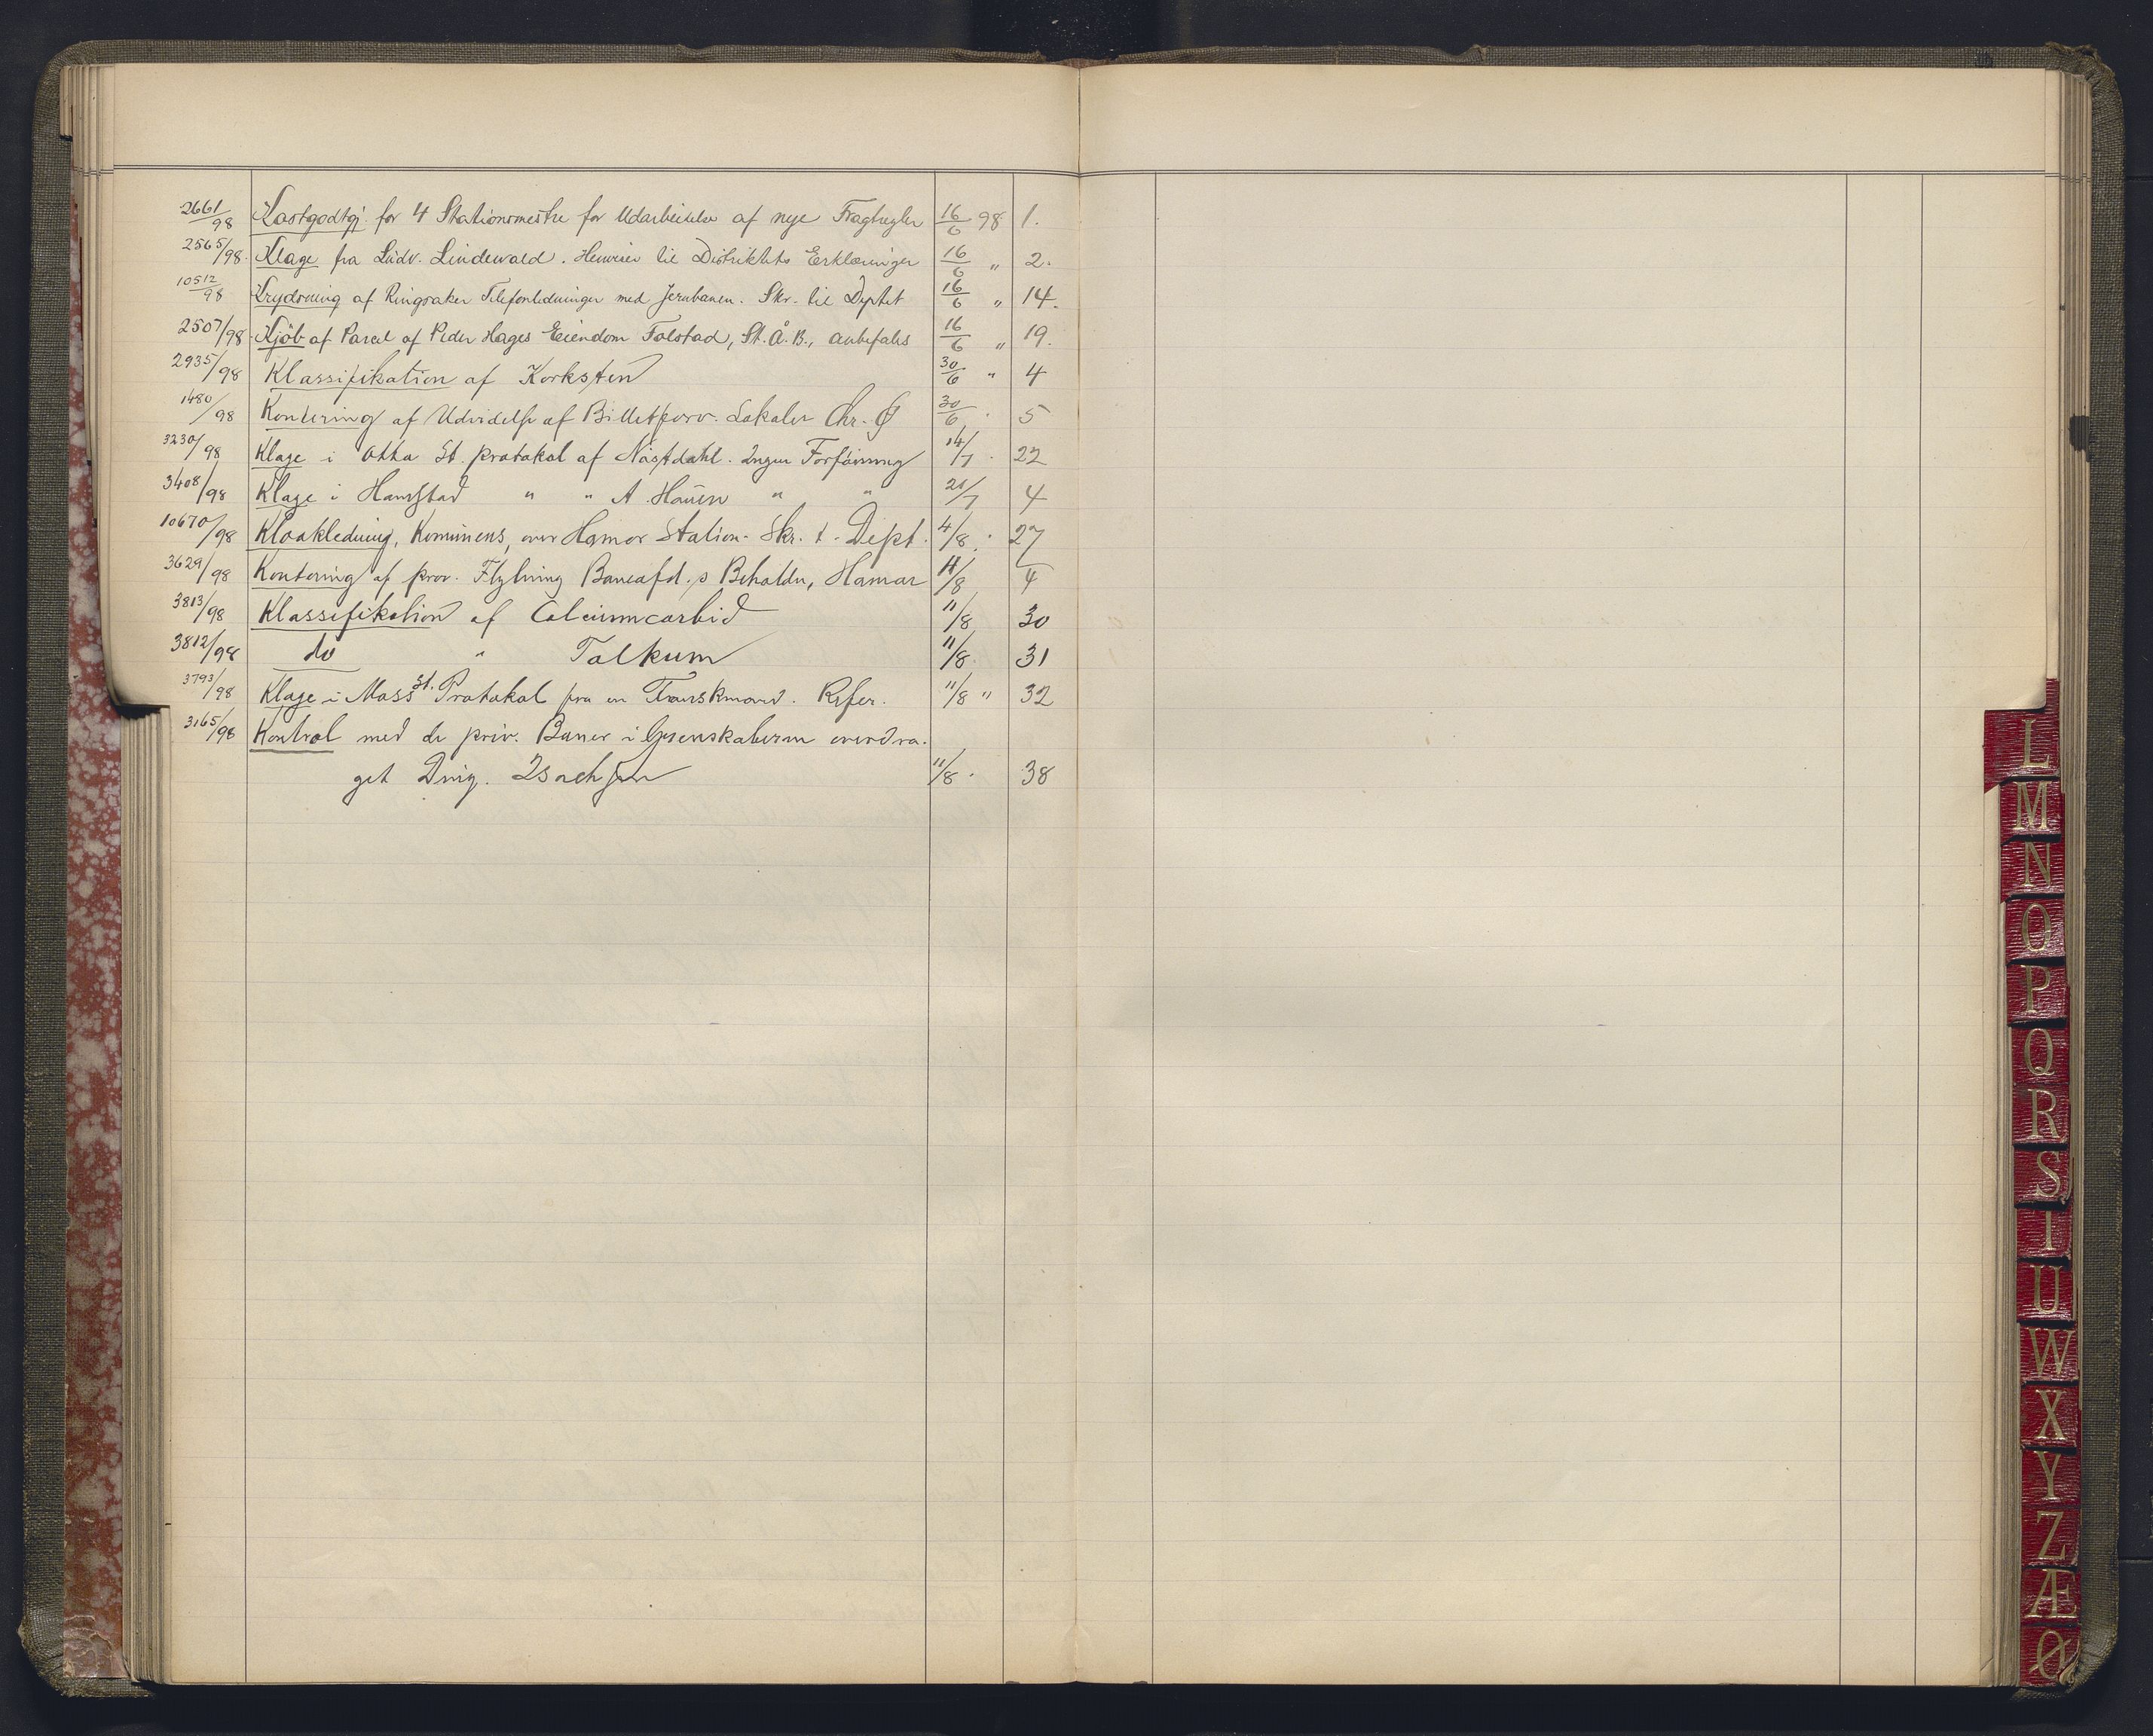 2661/98 Kostgodtgj. for 4 Stationsmestre for Udarbeidelse af nye Fragtregler 16/6 98 1.
2565/98. Klage fra Ludv. Lindewald. Henviser til Distriktets Erklæringer 16/6 " 2.
10512/98 Krydsning af Ringsaker Telefonledninger med Jernbanen. Skr. til Deptet 16/6 " 14.
2507/98. Kjöb af Parcel af Peder Hages Eiendom Folstad, St. Å. B., anbefales 16/6 " 19.
2935/98 Klassifikation af Korksten 30/6 " 4
1480/98 Kontering af Udvidelse af Billetforv. Lokaler Chr. Ø 30/6 . 5
3230/98 Klage i Otta St. protokol af Nåstdahl. Ingen Forföining 14/7 . 22
3408/98 Klage i Hamstad " " A. Hauen " " 21/7 4
10670/98 Kloakledning, Komunens, over Hamar Station. Skr. t. Dept. 4/8 . 27
3629/98 Kontering af prov. Flytning Baneafd. s Beholdn, Hamar 11/8 4
3813/98 Klassifikation af Calciumcarbid 11/8 30
3812/98 do " Talkum 11/8. 31
3793/98 Klage i Moss St. Protokol fra en Transkmand. Refer. 11/8 " 32
3165/98 Kontrol med de priv. Baner i Grenskaberne overdra-
get Ding. Isachsen 11/8 . 38
L
M
N
O
P
Q
R
S
T
U
W
X
Y
Z
Æ
Ø